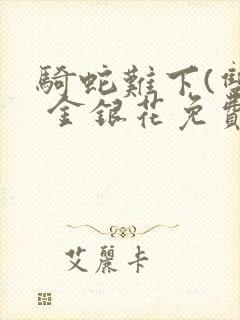 騎蛇難下(雙
金銀花免費
艾麗卡